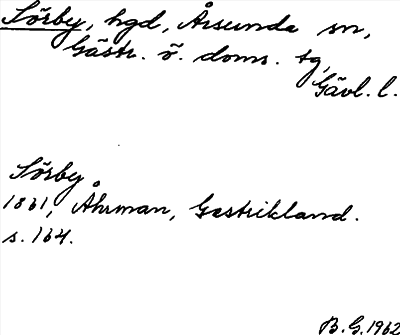 Sörby, hgd, Årsunda sn,
Gästr. ö. doms. tg,
Gävl. l.
Sörby
1861, Åhrman, Gestrikland.
s. 164.
B. G. 1962